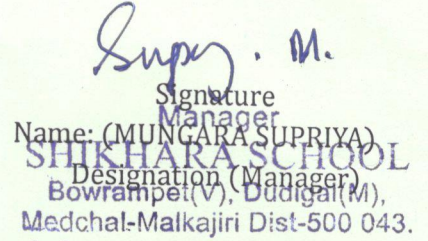 Supry. M.
Signature
Manager
Name: (MUNGARA SUPRIYA)
SHIKHARA SCHOOL
Designation (Manager)
Bowrampet(V), Dudigal(M),
Medchal-Malkajiri Dist-500 043.